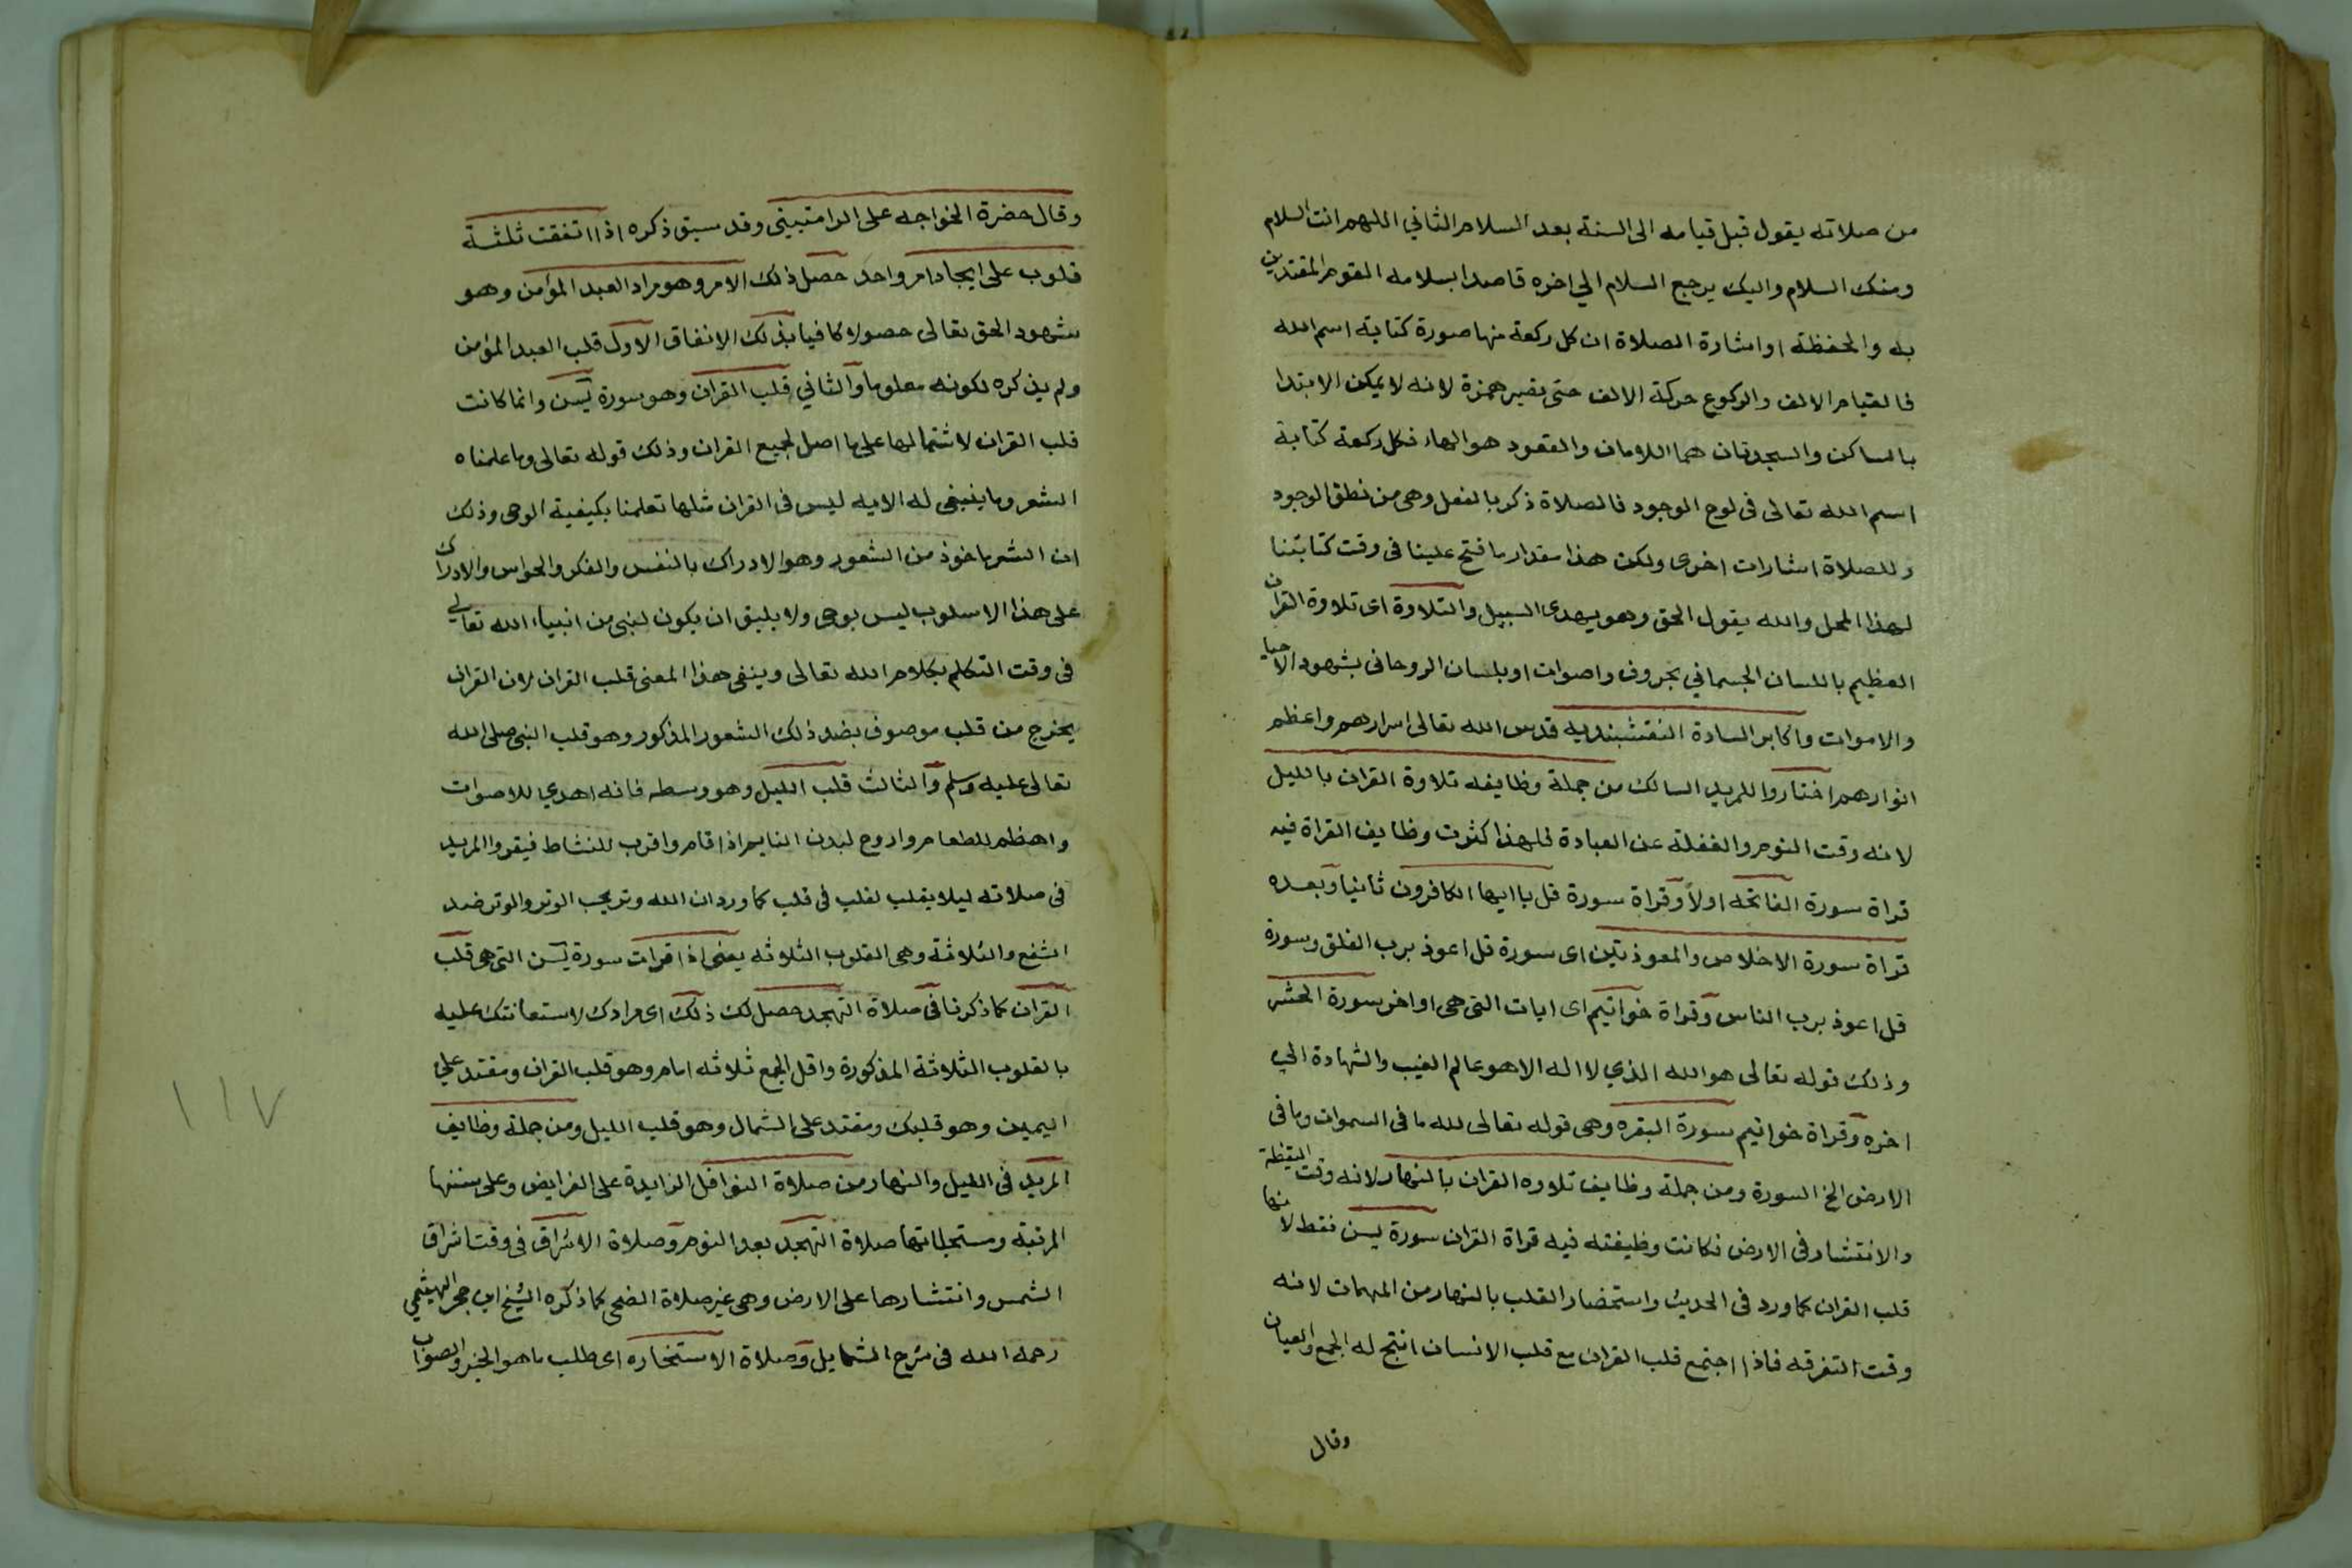 من صلاته يقول قبل قيامه الى السنة بعد السلام الثاني اللهم انت السلام
ومنك السلام واليك يرجع السلام الي اخره قاصدا بسلامه القوم المقتدين
به والحفظة او اشارة الصلاة ان كل ركعة منها صورة كتابة اسم الله
فالقيام الالف والركوع حركة الالف حتى تصير همزة لانه لا يمكن الابتدا
بالساكن والسجدتان هما اللامان والقعود هو الهاء فكل ركعة كتابة
اسم الله تعالى فى لوح الوجود فالصلاة ذكر بالفعل وهى من نطق الوجود
وللصلاة اشارات اخرى ولكن هذا مقدار ما فتح علينا فى وقت كتابتنا
لهذا المحل والله يقول الحق وهو يهدى السبيل والتلاوة اى تلاوة القران
العظيم باللسان الجسماني بحروف واصوات او بلسان الروحانى بشهود الاحيا
والاموات واكابر السادة النقشبنديه قدس الله تعالى اسرارهم واعظم
انوارهم اختاروا للمريد السالك من جملة وظايفه تلاوة القران بالليل
لانه وقت النوم والغفلة عن العبادة فلهذا كثرت وظايف القراة فيه
قراة سورة الفاتحه اولاً وقراة سورة قل يا ايها الكافرون ثانيا وبعده
قراة سورة الاخلاص والمعوذتين اى سورة قل اعوذ برب الفلق وسورة
قل اعوذ برب الناس وقراة خواتيم اى ايات التى هى اواخر سورة الحشر
وذلك قوله تعالى هو الله الذي لا اله الا هو عالم الغيب والشهادة الى
اخره وقراة خواتيم سورة البقره وهى قوله تعالى لله ما فى السموات وما فى
الارض الخ السورة ومن جملة وظايف تلاوه القران بالنهار لانه وقت اليقظة
والانتشار فى الارض فكانت وظيفته فيه قراة القران سورة يسن فقط لانها
قلب القران كما ورد فى الحديث واستحضار القلب بالنهار من المهمات لانه
وقت التفرقه فاذا اجتمع قلب القران مع قلب الانسان انتج له الجمع والعيان
وقال
وقال حضرة الخواجه على الرامتينى وقد سبق ذكره اذا اتفقت ثلثة
قلوب على ايجاد امر واحد حصل ذلك الامر وهو مراد العبد المؤمن وهو
شهود الحق تعالى حصولا كافيا بذلك الاتفاق الاول قلب العبد المؤمن
ولم يذكره لكونه معلوما والثاني قلب القران وهو سورة يسن وانما كانت
قلب القران لاشتمالها على ما اصل لجميع القران وذلك قوله تعالى وما علمناه
الشعر وما ينبغى له الايه ليس فى القران مثلها تعلمنا بكيفية الوحى وذلك
ان الشعر ماخوذ من الشعور وهو الادراك بالنفس والفكر والحواس والادراك
على هذا الاسلوب ليس بوحى ولا يليق ان يكون لنبى من انبياء الله تعالي
فى وقت التكلم بكلام الله تعالى وينفى هذا المعنى قلب القران لان القران
يخرج من قلب موصوف بضد ذلك الشعور المذكور وهو قلب النبى صلى الله
تعالى عليه وسلم والثالث قلب الليل وهو وسطه فانه اهدي للاصوات
واهضم للطعام واروح لبدن النايم اذا قام واقرب للنشاط فيقروا المريد
فى صلاته ليلا بقلب لقلب فى قلب كما ورد ان الله وتر يحب الوتر والوتر ضد
الشفع والثلاثة وهى القلوب الثلاثه يعنى اذا قرات سورة يسن التى هى قلب
القران كما ذكرنا فى صلاة التهجد حصل لك ذلك اى مرادك لاستعانتك عليه
بالقلوب الثلاثة المذكورة واقل الجمع ثلاثه امام وهو قلب القران ومقتد علي
اليمين وهو قلبك ومقتد على الشمال وهو قلب الليل ومن جملة وظايف
المريد فى الليل والنهار من صلاة النوافل الزايدة على الفرايض وعلى سننها
المرتبة ومستحباتها صلاة التهجد بعد النوم وصلاة الاشراق فى وقت اشراق
الشمس وانتشارها على الارض وهى غير صلاة الضحى كما ذكره الشيخ ابن حجر الهيثمي
رحمه الله فى شرح الشمايل وصلاة الاستخاره اى طلب ما هو الخير والصواب
١١٧